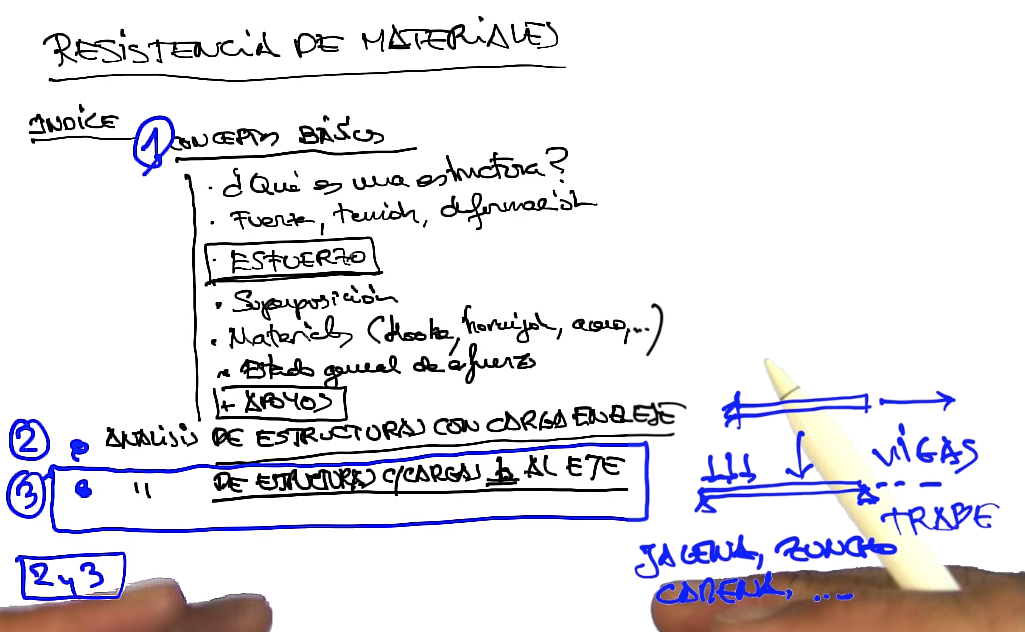 RESISTENCIA DE MATERIALES
INDICE
1 CONCEPTOS BÁSICOS
· ¿Qué es una estructura?
· Fuerza, tensión, deformación
· ESFUERZO
· Superposición
· Materiales (Hooke, hormigón, acero,...)
· Estado general de esfuerzo
+ APOYOS
2 · ANALISIS DE ESTRUCTURAS CON CARGA EN EL EJE
3 · " DE ESTRUCTURAS C/CARGAS ⊥ AL EJE
VIGAS
TRABE
JACENA, ZUNCHO
CADENA, ...
2 y 3